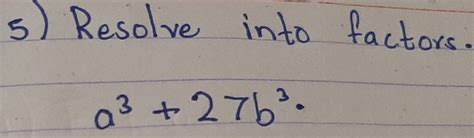 5) Resolve into factors.
a³ + 27b³.